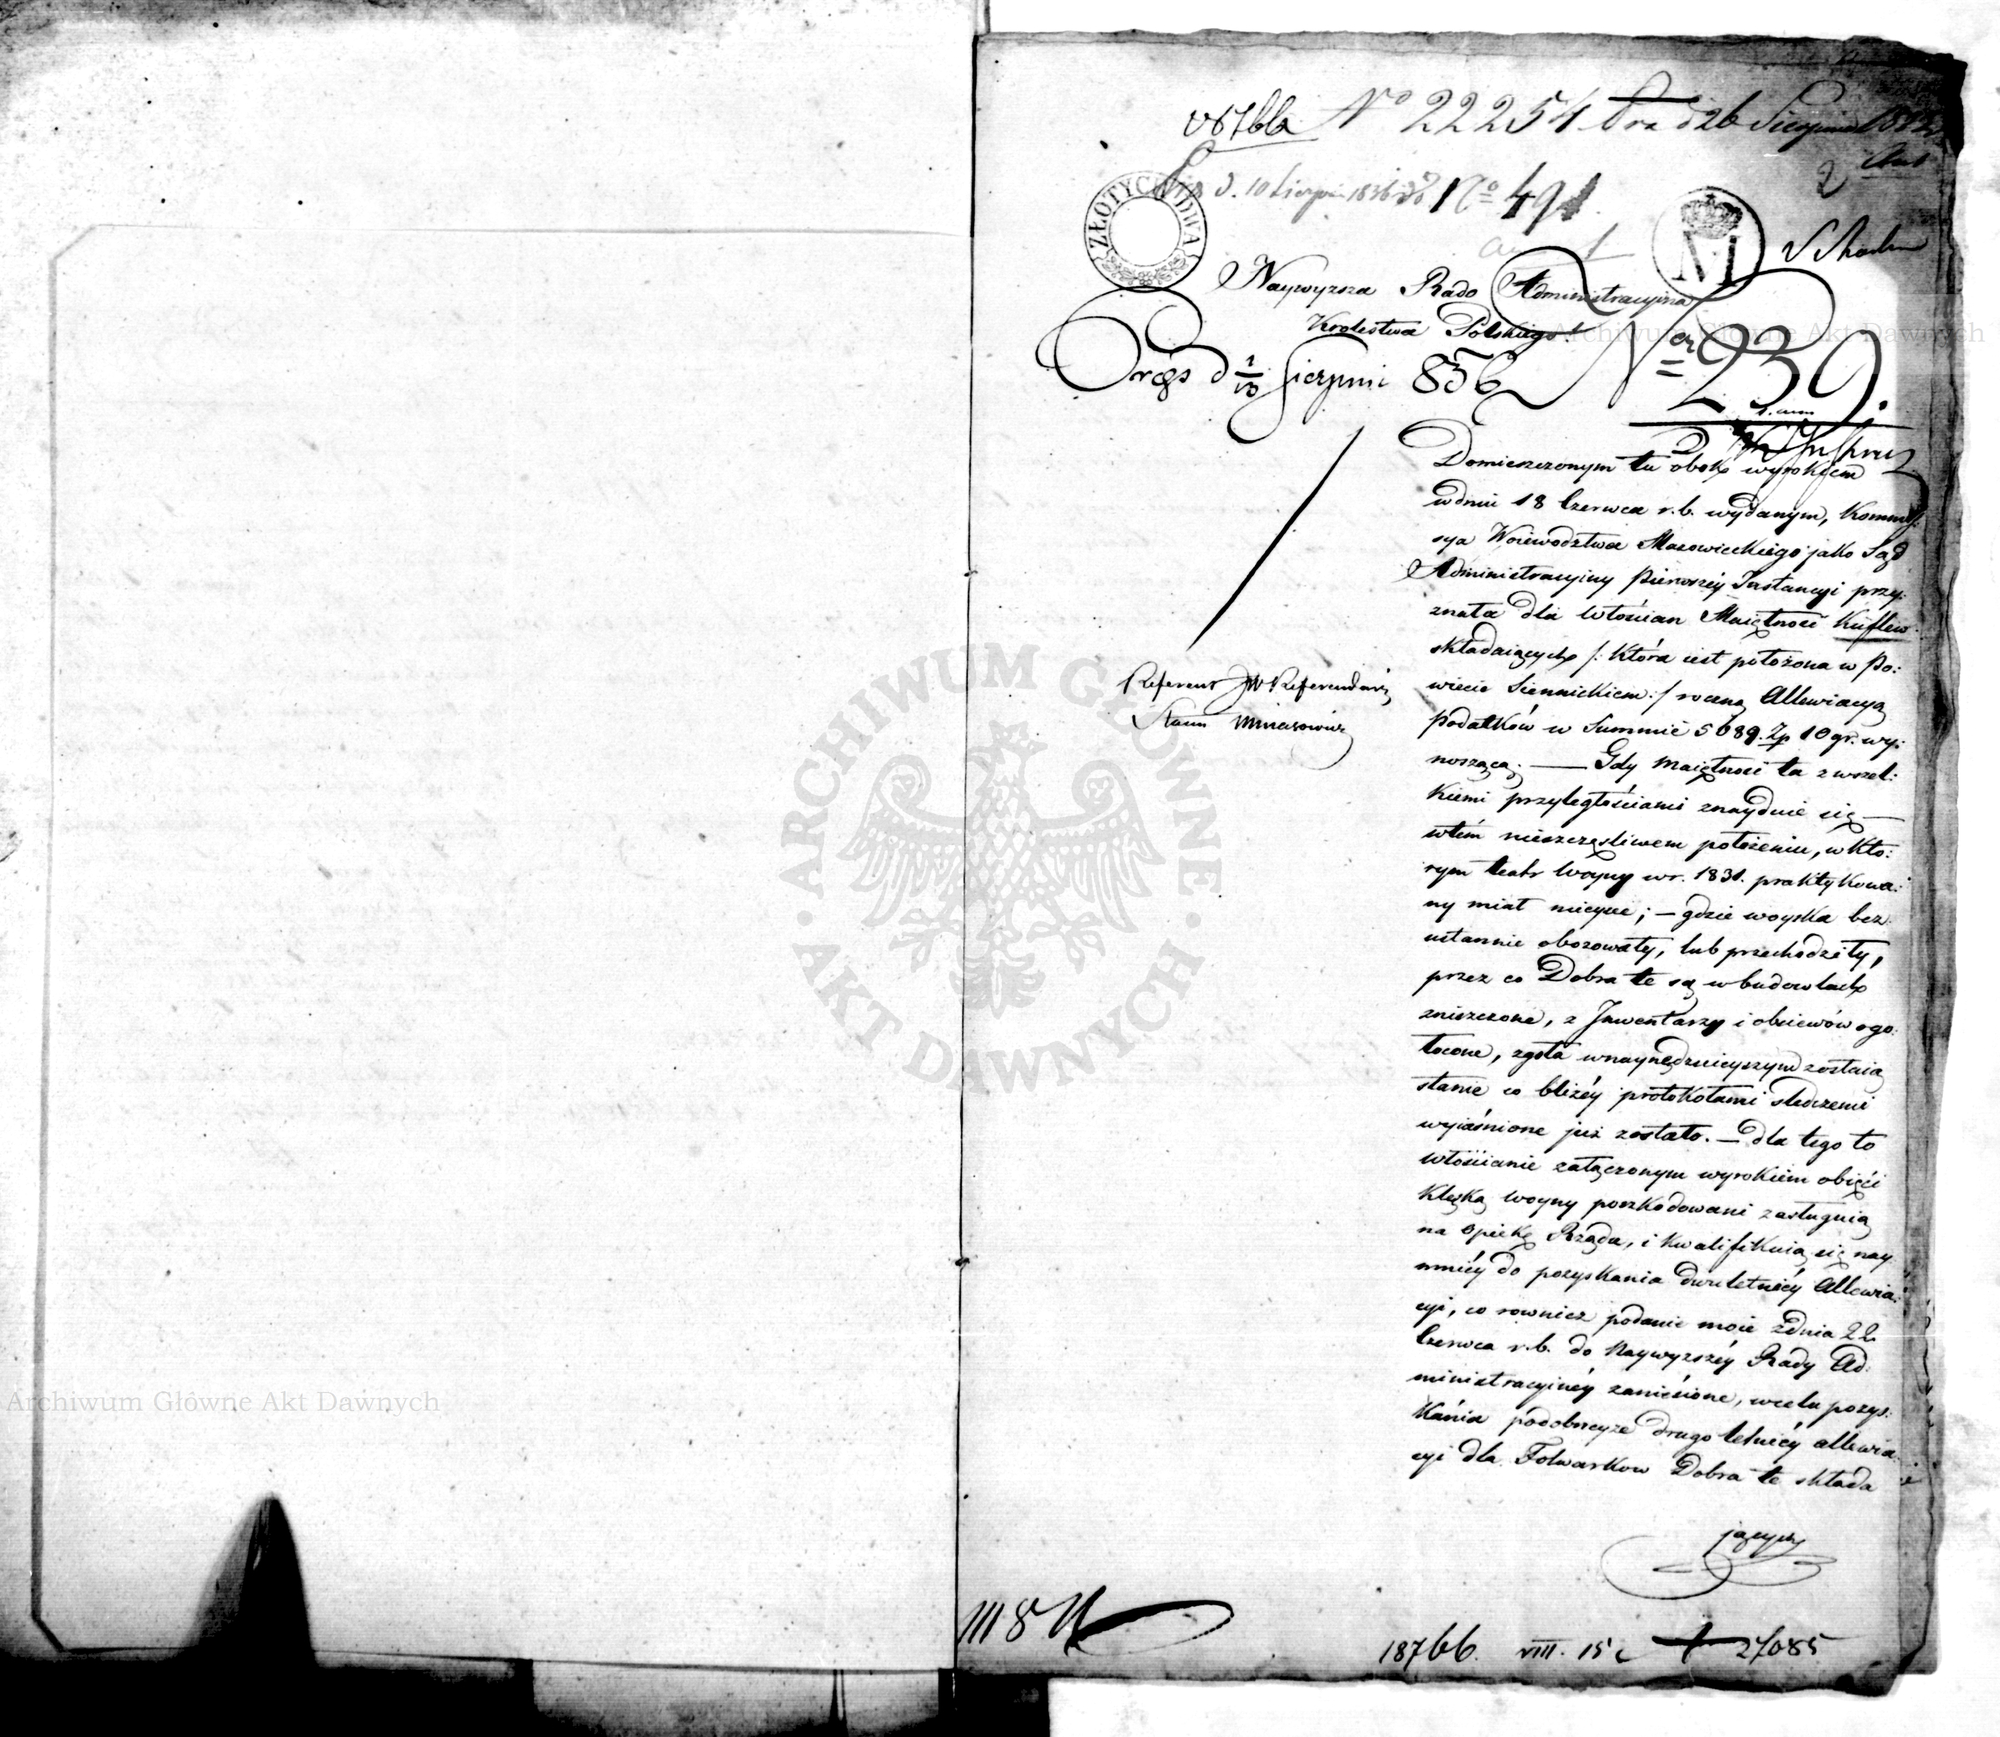 18766 No 22254 Pra d 26 Sierpnia
2
d. 10 Sierpnia 1836 No 491
ZŁOTYCH DWA
Naywyzsza Rado Administracyjna
Krolestwa Polskiego!
d 1/13 Sierpnia 836 Nr 239.
Domieszczonym tu obok wyrokiem
w dniu 18 Czerwca r.b. wydanym, Kommis=
sya Woiewodztwa Mazowieckiego jako Sąd
Administracyiny Pierwszéy Instancyi przy:
znała dla Włościan Maiętność Kuflew
składaiących /: która iest położona w Po:
wiecie Siennickiem :/ roczną Allewiacyą
Podatków w Summie 5089 Zp 10 gr. wy:
noszącą; — Gdy Maiętność ta z wszel:
kiemi przyległościami znayduie się —
w tém nieszczęśliwem położeniu, w któ:
rym teatr Woyny w r. 1831. praktykowa:
ny miał mieysce; — gdzie woyska bez
ustannie obozowały, lub przechodziły,
przez co Dobra te są w budowlach
zniszczone, z Jnwentarzy i obsiewów ogo:
łocone, zgoła w naynędznieyszym zostaią
stanie co bliżéy protokołami śledczemi
wyiaśnione już zostało. — dla tego to
Włościanie załączonym wyrokiem obięci
klęską Woyny poszkodowani zasługuią
na opiekę Rządu, i kwalifikuią się nay
mniéy do pozyskania dwuletniéy Allewia:
cyi, co rownież podanie moie z dnia 22
Czerwca r.b. do Naywyzszéy Rady Ad:
ministracyinéy zaniesione, w celu pozys:
kania podobneyże drugoletniéy allewia
cyi dla Folwarkow Dobra te składa
jących
Referent JW Referendarz
Stanu Minasowicz
18766. VIII. 15 27085
ARCHIWUM GŁÓWNE AKT DAWNYCH
Archiwum Główne Akt Dawnych
Archiwum Główne Akt Dawnych